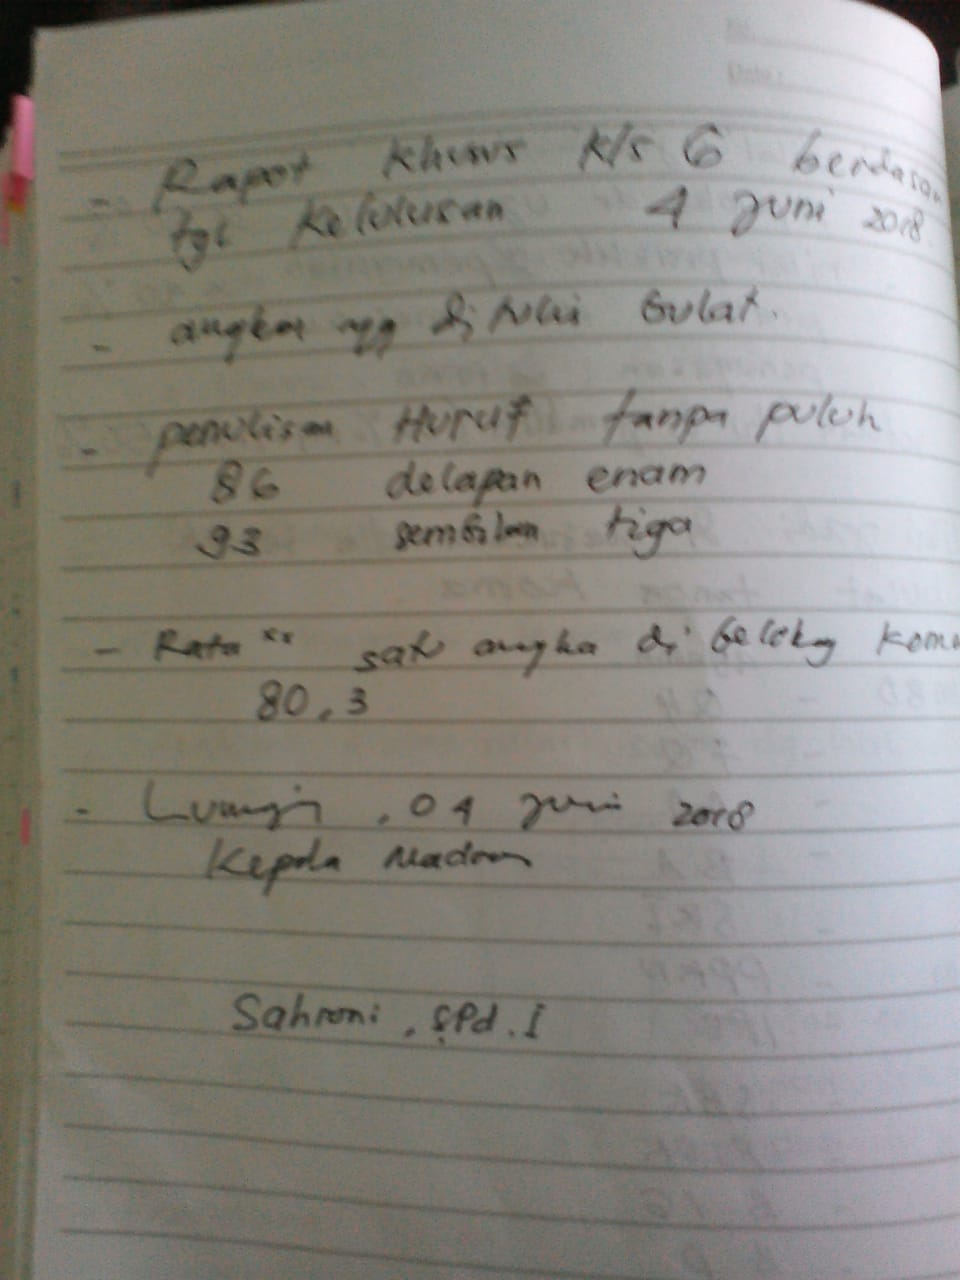 No.
Date :
- Rapot khusus kls 6 berdasan
tgl kelulusan 4 juni 2018
- angka yg di tulis bulat.
- penulisan Huruf tanpa puluh
86 delapan enam
93 sembilan tiga
- Rata" satu angka di belakg koma
80,3
- , 04 juni 2018
Kepala Madrasah
Sahroni, S.Pd.I